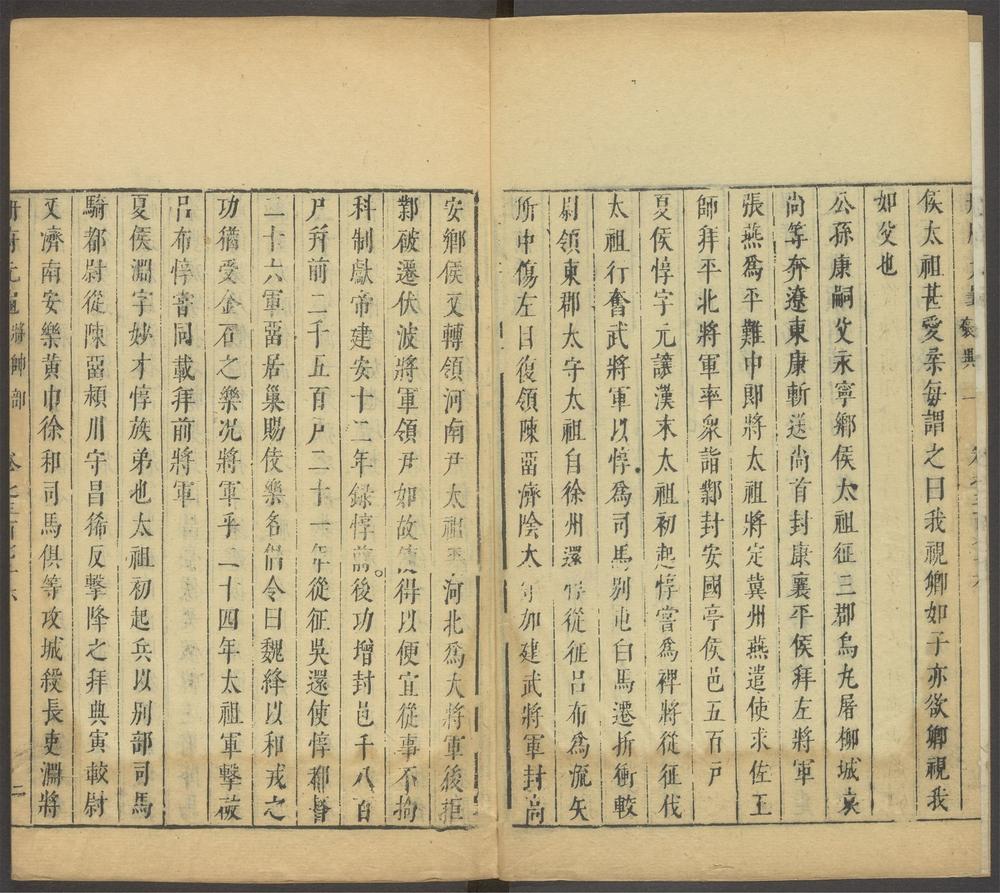 侯太祖甚愛亲每謂之曰我視卿如子亦欲卿視我
如父也
公孫康嗣父永寧鄉侯太祖征三郡烏九屠柳城袁
尚等奔遼東康斬送尚首封康襄平侯拜左將軍
張燕爲平難中郎將太祖將定冀州燕遣使求佐王
師拜平北將軍率衆詣鄴封安國亭侯邑五百戸
夏侯惇字元讓漢末太祖初起惇嘗爲裨將從征伐
太祖行奮武將軍以惇爲司馬别屯白馬遷折衝較
尉領東郡太守太祖自徐州還惇從征吕布爲流矢
所中傷左目復領陳留濟陰太守加建武將軍封高
安鄉侯又轉領河南尹太祖平河北爲大將軍後拒
鄴破遷伏波將軍領尹如故使得以便宜從事不拘
科制獻帝建安十二年録惇前後功增封邑千八百
戸并前二千五百戸二十一年從征吳還使惇都督
二十六軍留居巢賜伎樂名倡令曰魏絳以和戎之
功猶受金石之樂况將軍乎二十四年太祖軍擊破
吕布惇嘗同載拜前將軍
夏侯淵字妙才惇族弟也太祖初起兵以别部司馬
騎都尉從陳留潁川守昌豨反擊降之拜典寅較尉
又濟南安樂黄巾徐和司馬俱等攻城殺長吏淵將
冊府元龜 將帥部 二